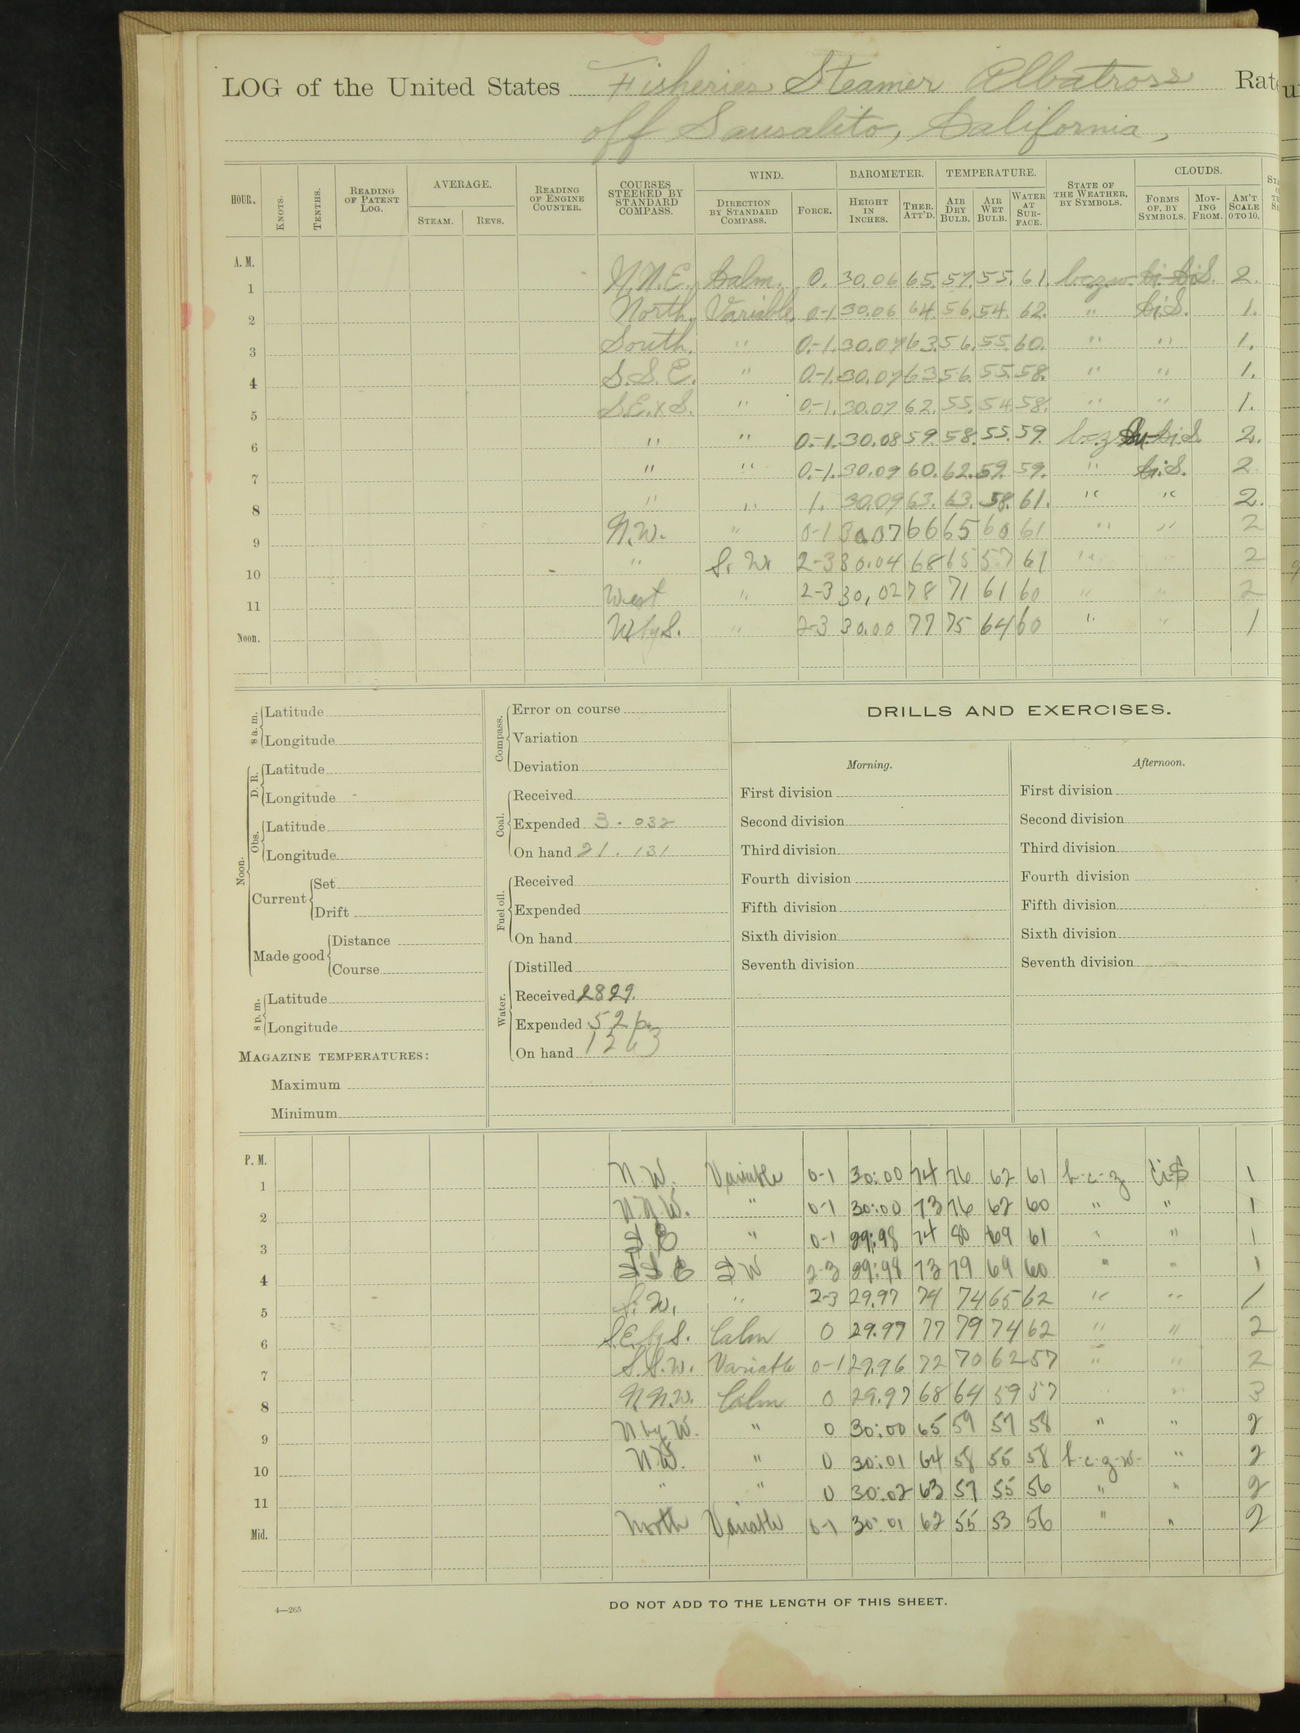 LOG of the United States Fisheries Steamer Albatross Rate
off Sausalito, California,
HOUR. KNOTS. TENTHS. READING OF PATENT LOG. AVERAGE. STEAM. REVS. READING OF ENGINE COUNTER. COURSES STEERED BY STANDARD COMPASS. WIND. DIRECTION BY STANDARD COMPASS. FORCE. BAROMETER. HEIGHT IN INCHES. THER. ATT'D. TEMPERATURE. AIR DRY BULB. AIR WET BULB. WATER AT SURFACE. STATE OF THE WEATHER, BY SYMBOLS. CLOUDS. FORMS OF, BY SYMBOLS. MOVING FROM. AM'T SCALE 0 TO 10.
A. M.
1 N.N.E. Calm. 0. 30.06 65. 57. 55. 61. b.c.z.w. Ci.S. 2.
2 North. Variable. 0-1 30.06 64. 56. 54. 62. " Ci.S. 1.
3 South. " 0-1. 30.07 63. 56. 55. 60. " " 1.
4 S.S.E. " 0-1. 30.07 63. 56. 55. 58. " " 1.
5 S.E.xS. " 0-1. 30.07 62. 55. 54. 58. " " 1.
6 " " 0-1. 30.08 59. 58. 55. 59. b.c.z. Ci.S. 2.
7 " " 0-1. 30.09 60. 62. 59. 59. " Ci.S. 2
8 " " 1. 30.09 63. 63. 58. 61. " " 2.
9 N.W. " 0-1 30.07 66 65 60 61 " " 2
10 " S.W. 2-3 30.04 68 65 57 61 " " 2
11 West " 2-3 30.02 78 71 61 60 " " 2
Noon. W. by S. " 2-3 30.00 77 75 64 60 " " 1
8 a. m. Latitude
Longitude
Noon. D. R. Latitude
Longitude
Obs. Latitude
Longitude
Current Set
Drift
Made good Distance
Course
8 p. m. Latitude
Longitude
MAGAZINE TEMPERATURES:
Maximum
Minimum
Compass. Error on course
Variation
Deviation
Coal. Received
Expended 3.032
On hand 21.131
Fuel oil. Received
Expended
On hand
Water. Distilled
Received 2829.
Expended
On hand
DRILLS AND EXERCISES.
Morning. Afternoon.
First division First division
Second division Second division
Third division Third division
Fourth division Fourth division
Fifth division Fifth division
Sixth division Sixth division
Seventh division Seventh division
P. M.
1 N.W. Variable 0-1 30:00 74 76 62 61 b-c-z Ci S 1
2 N.N.W. " 0-1 30:00 73 76 62 60 " " 1
3 S E " 0-1 29:98 74 80 69 61 " " 1
4 S S E S W 2-3 29:98 73 79 69 60 " " 1
5 S.W. " 2-3 29.97 74 74 65 62 " " 1
6 S.E. by S. Calm 0 29.97 77 79 74 62 " " 2
7 S.S.W. Variable 0-1 29.96 72 70 62 57 " " 2
8 N.N.W. Calm 0 29.97 68 64 59 57 " " 3
9 N by W. " 0 30:00 65 59 57 58 " " 2
10 N.W. " 0 30:01 64 58 56 58 b-c-z-w- " 2
11 " " 0 30:02 63 57 55 56 " " 2
Mid. North Variable 0-1 30:01 62 55 53 56 " " 2
4—265
DO NOT ADD TO THE LENGTH OF THIS SHEET.